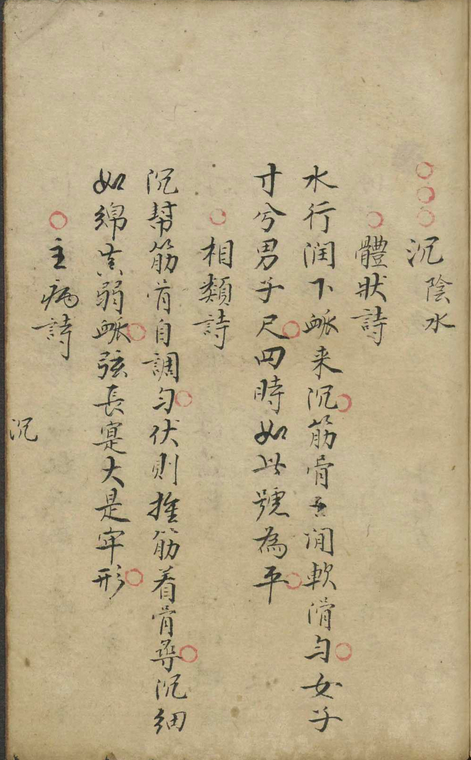 沉陰水
體狀詩
水行润下脈来沉筋骨之间軟滑勻女子
寸兮男子尺四時如此號為平
相類詩
沉幇筋骨自調勻伏則推筋着骨尋沉細
如綿真弱脈弦長寔大是牢形
主病詩
沉